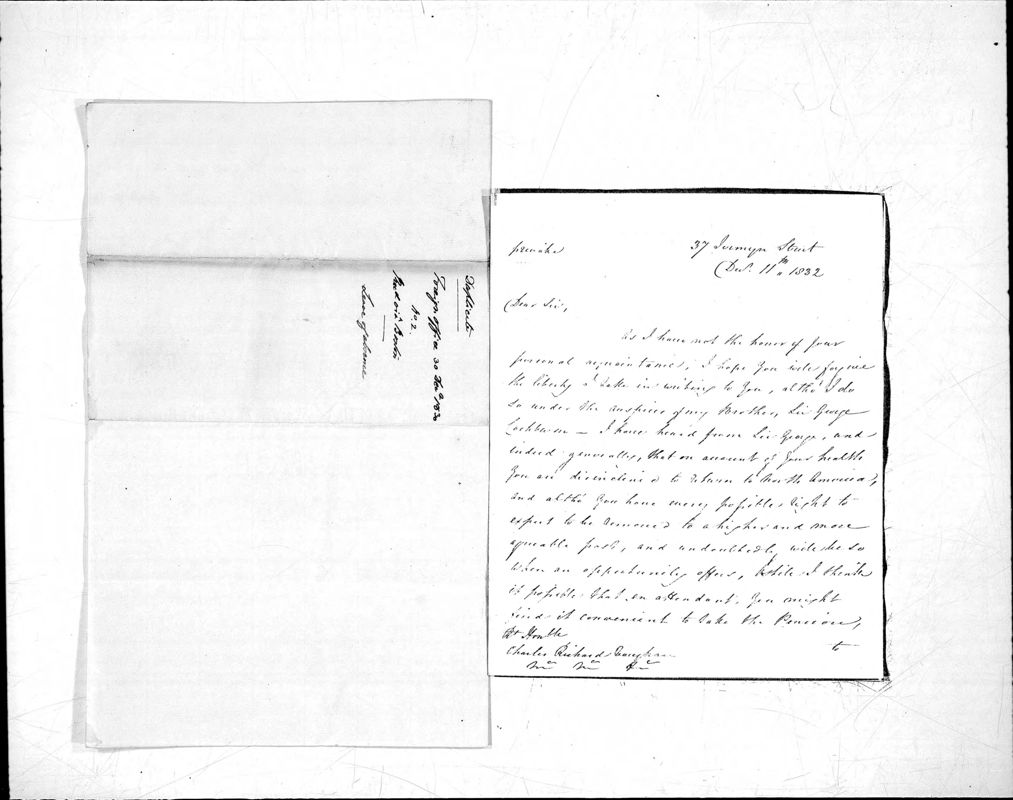 Duplicate
Foreign Office 30
No. 2.
Leave of absence
private
37 Jermyn Street
Decr. 11th 1832
Dear Sir,
As I have not the honor of your
personal acquaintance, I hope you will forgive
the liberty I take in writing to you, altho' I do
so under the auspices of my Brother, Sir George
Cockburn — I have heard from Sir George, and
indeed generally, that on account of your health
you are disinclined to return to North America,
and altho' you have every possible right to
expect to be removed to a higher and more
agreeable post, and undoubtedly will be so
when an opportunity offers, while I think
it possible that en attendant, you might
find it convenient to take the Pension,
Rt Honble
to
Charles Richard Vaughan